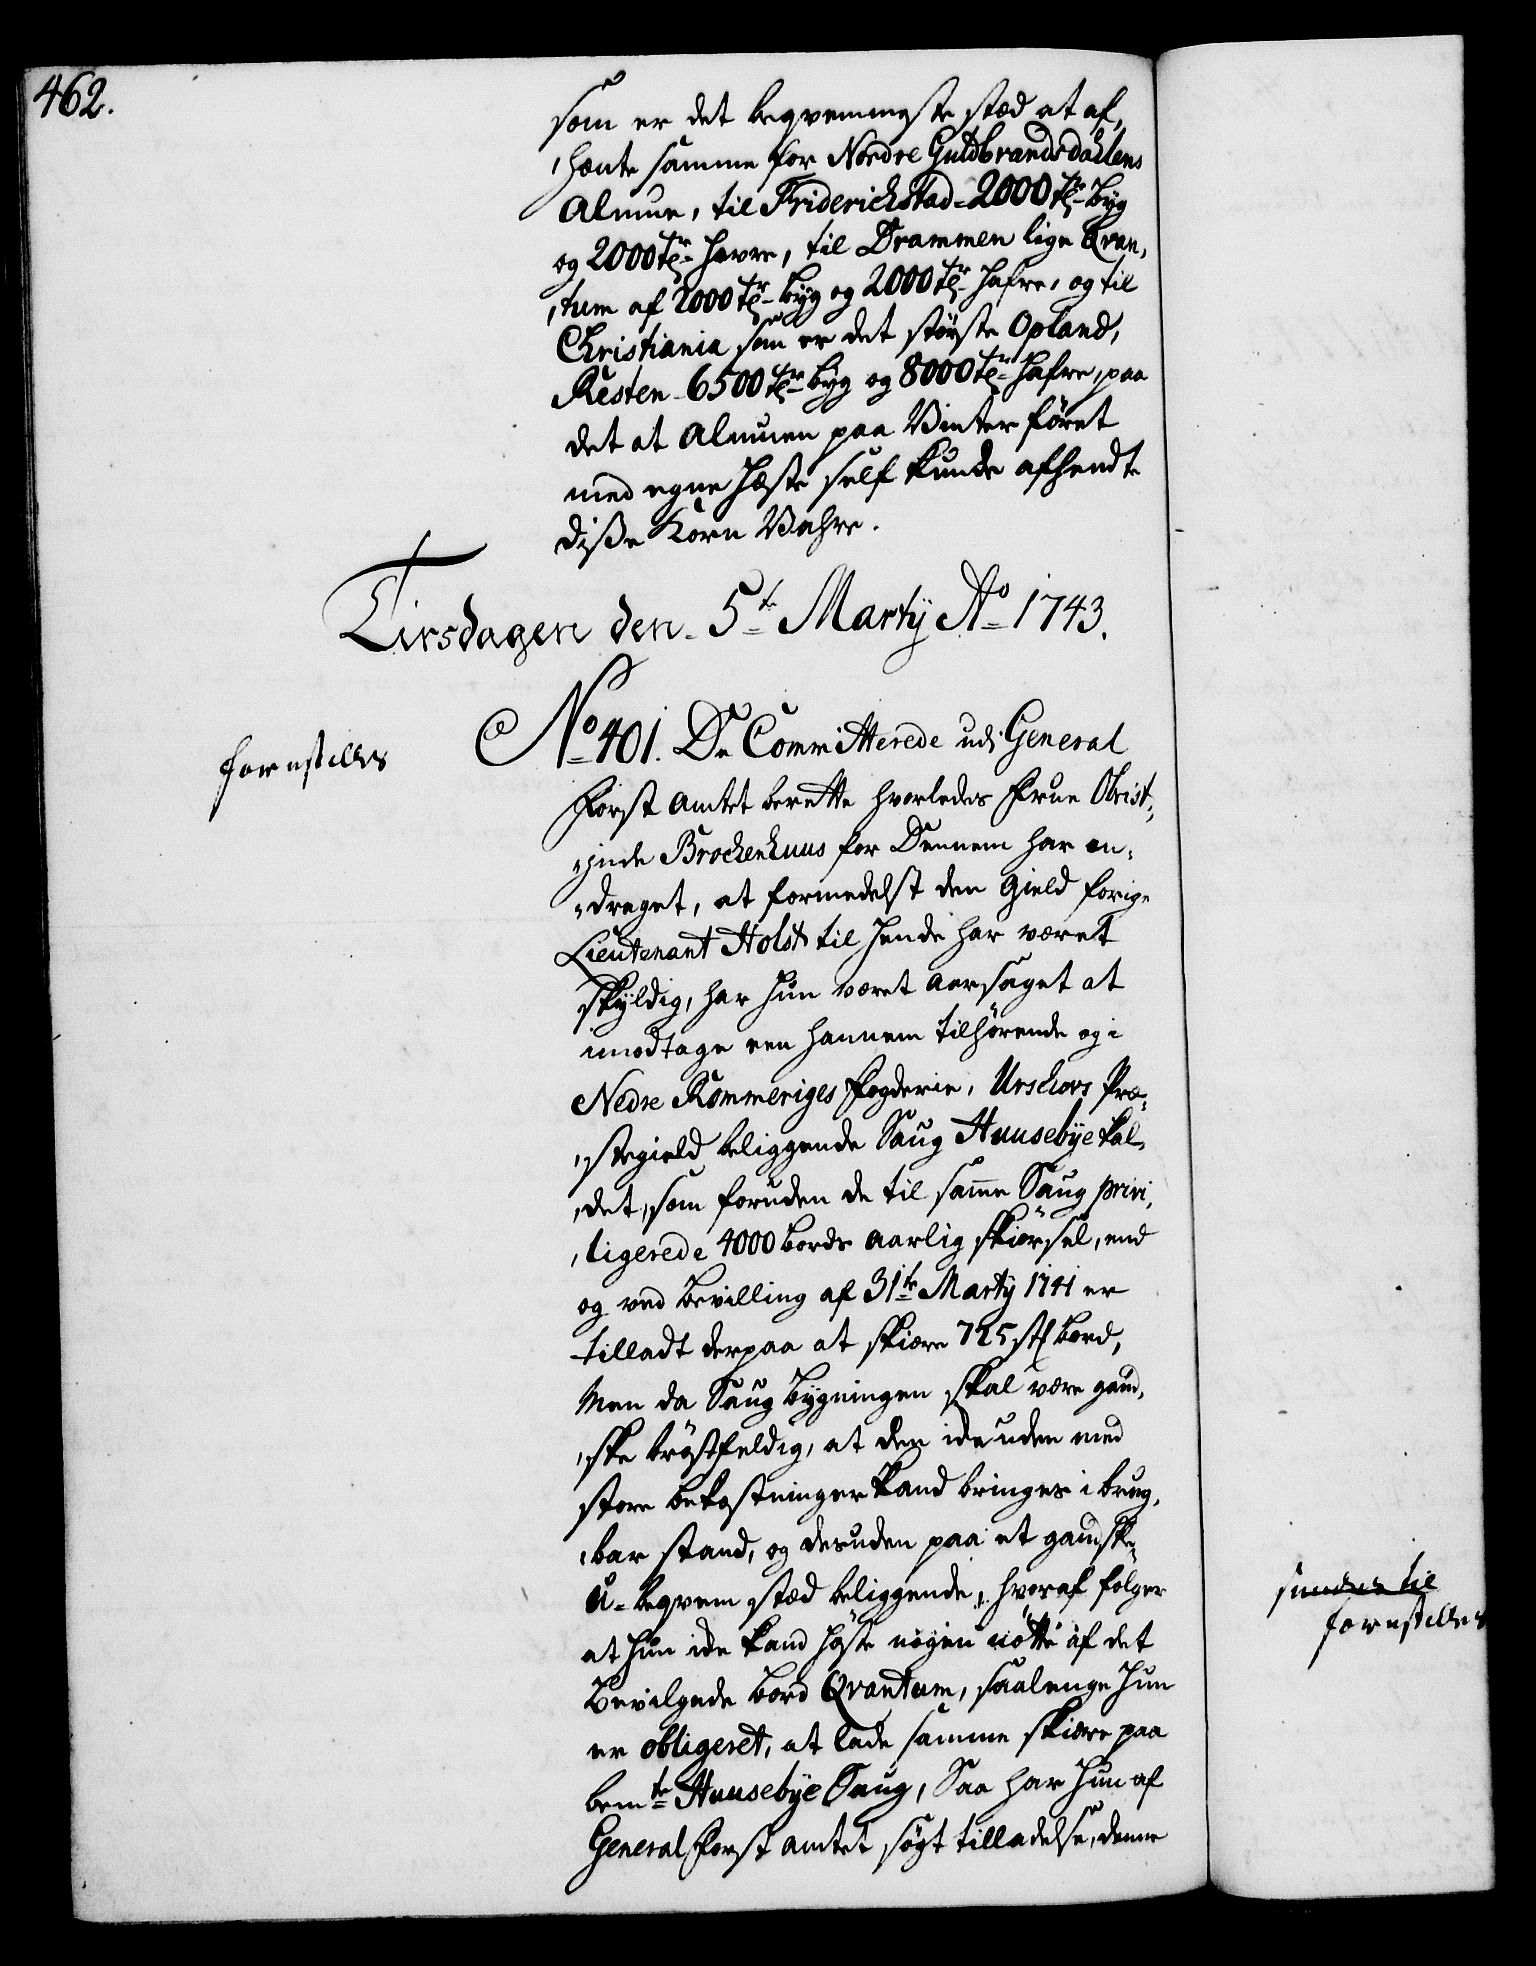 462.
som er det beqvemmeste stæd at af,
,hænte samme for Nordre Guldbrandsdahlens
Almue, til Friderichstad 2000 tr Byg
og 2000 tr Havre, til Drammen lige Qvan,
,tum af 2000 tr Byg og 2000 tr Hafre, og til
Christiania som er det største Opland,
Resten 6500 tr Byg og 8000 tr Hafre, paa
det at Almuen paa Vinter føret
med egne Hæste self kunde afhendte
disse Korn Vahre.
Tirsdagen den 5te Martij Ao 1743.
fornstilles
No 401. De Committerede udi General
Forst Amtet berette hvorledes Frue Obrist,
,inde Brochenhuus for Dennem har an,
,draget, at formedelst den Gield forige
Lieutenant Holst til hende har været
skyldig, har hun været aarsaget at
imodtage een hannem tilhørende og i
Nedre Rommeriges Fogderie, Urschovs Præ,
,stegield beliggende Saug Huusebye kal,
,det, som foruden de til samme Saug privi,
,ligerede 4000 bords aarlig skiørsel, end
og ved Bevilling af 31te Martij 1741 er
tilladt derpaa at skiære 725 stk bord,
Men da Saug Bygningen skal være gand,
,ske brøstfeldig, at den icke uden med
store bekostninger kand bringes i brug,
,bar stand, og desuden paa et gandske
U-beqvem stæd beliggende, hvoraf følger
at hun icke kand høste nogen nøtte af det
Bevilgede bord Qvantum, saalenge hun
er obligeret, at lade samme skiære paa
bemte Huusebye Saug, Saa har hun af
General Forst Amtet søgt tilladelse, denne
sendes til
fornstilles